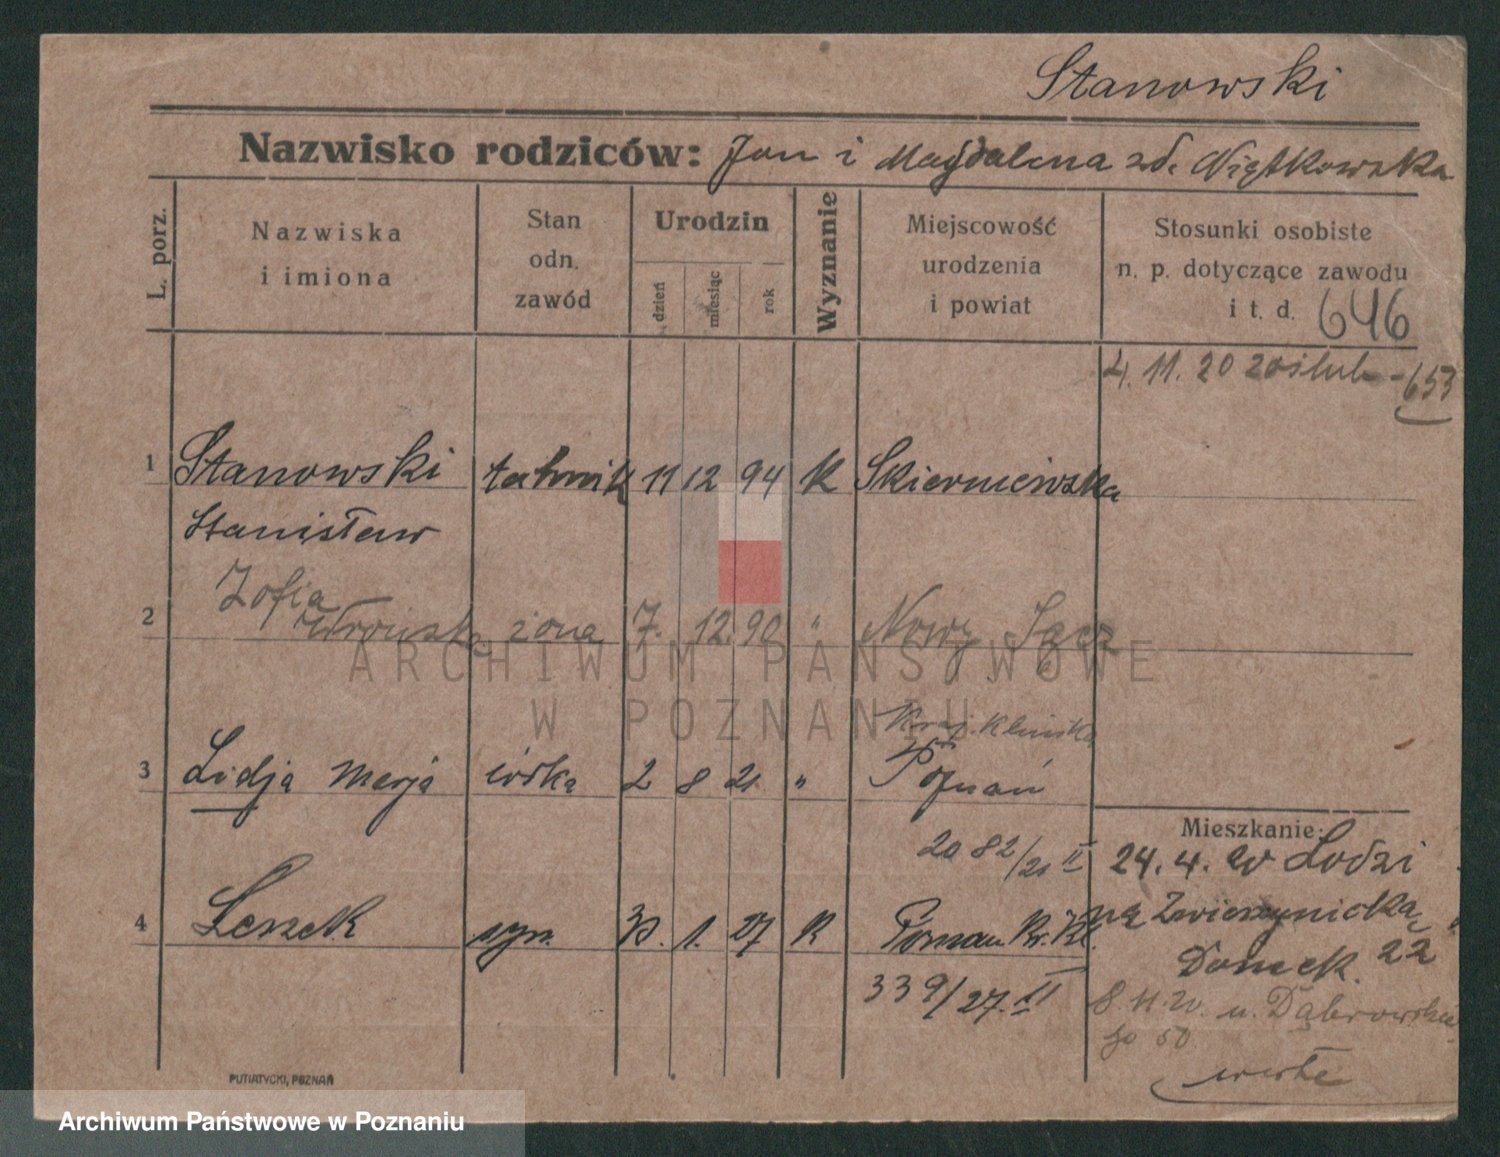 Stanowski
Nazwisko rodziców: Jan i Magdalena zd. Wiątkowska
L. porz.
Nazwiska
i imiona
Stan
odn.
zawód
Urodzin
dzień
miesiąc
rok
Wyznanie
Miejscowość
urodzenia
i powiat
Stosunki osobiste
n. p. dotyczące zawodu
i t. d. 646
4. 11. 20 zaślub - 653
1 Stanowski technik 11 12 94 K Skierniewska
Stanisław
Zofia
2 Wrońska żona 7. 12. 90 " Nowy Sącz
ARCHIWUM PAŃSTWOWE
W POZNANIU
3 Lidja Marja córka 2 8 21 " Poznań
2082/21 II
Mieszkanie:
24. 4. 20 Łodzi
4 Leszek syn 30. 1. 27 K Poznań
na Zwierzyniecka
22
339/27. II
8. 11. 20. u. Dąbrowskiego
50
verte
PUTIATYCKI, POZNAŃ
Archiwum Państwowe w Poznaniu